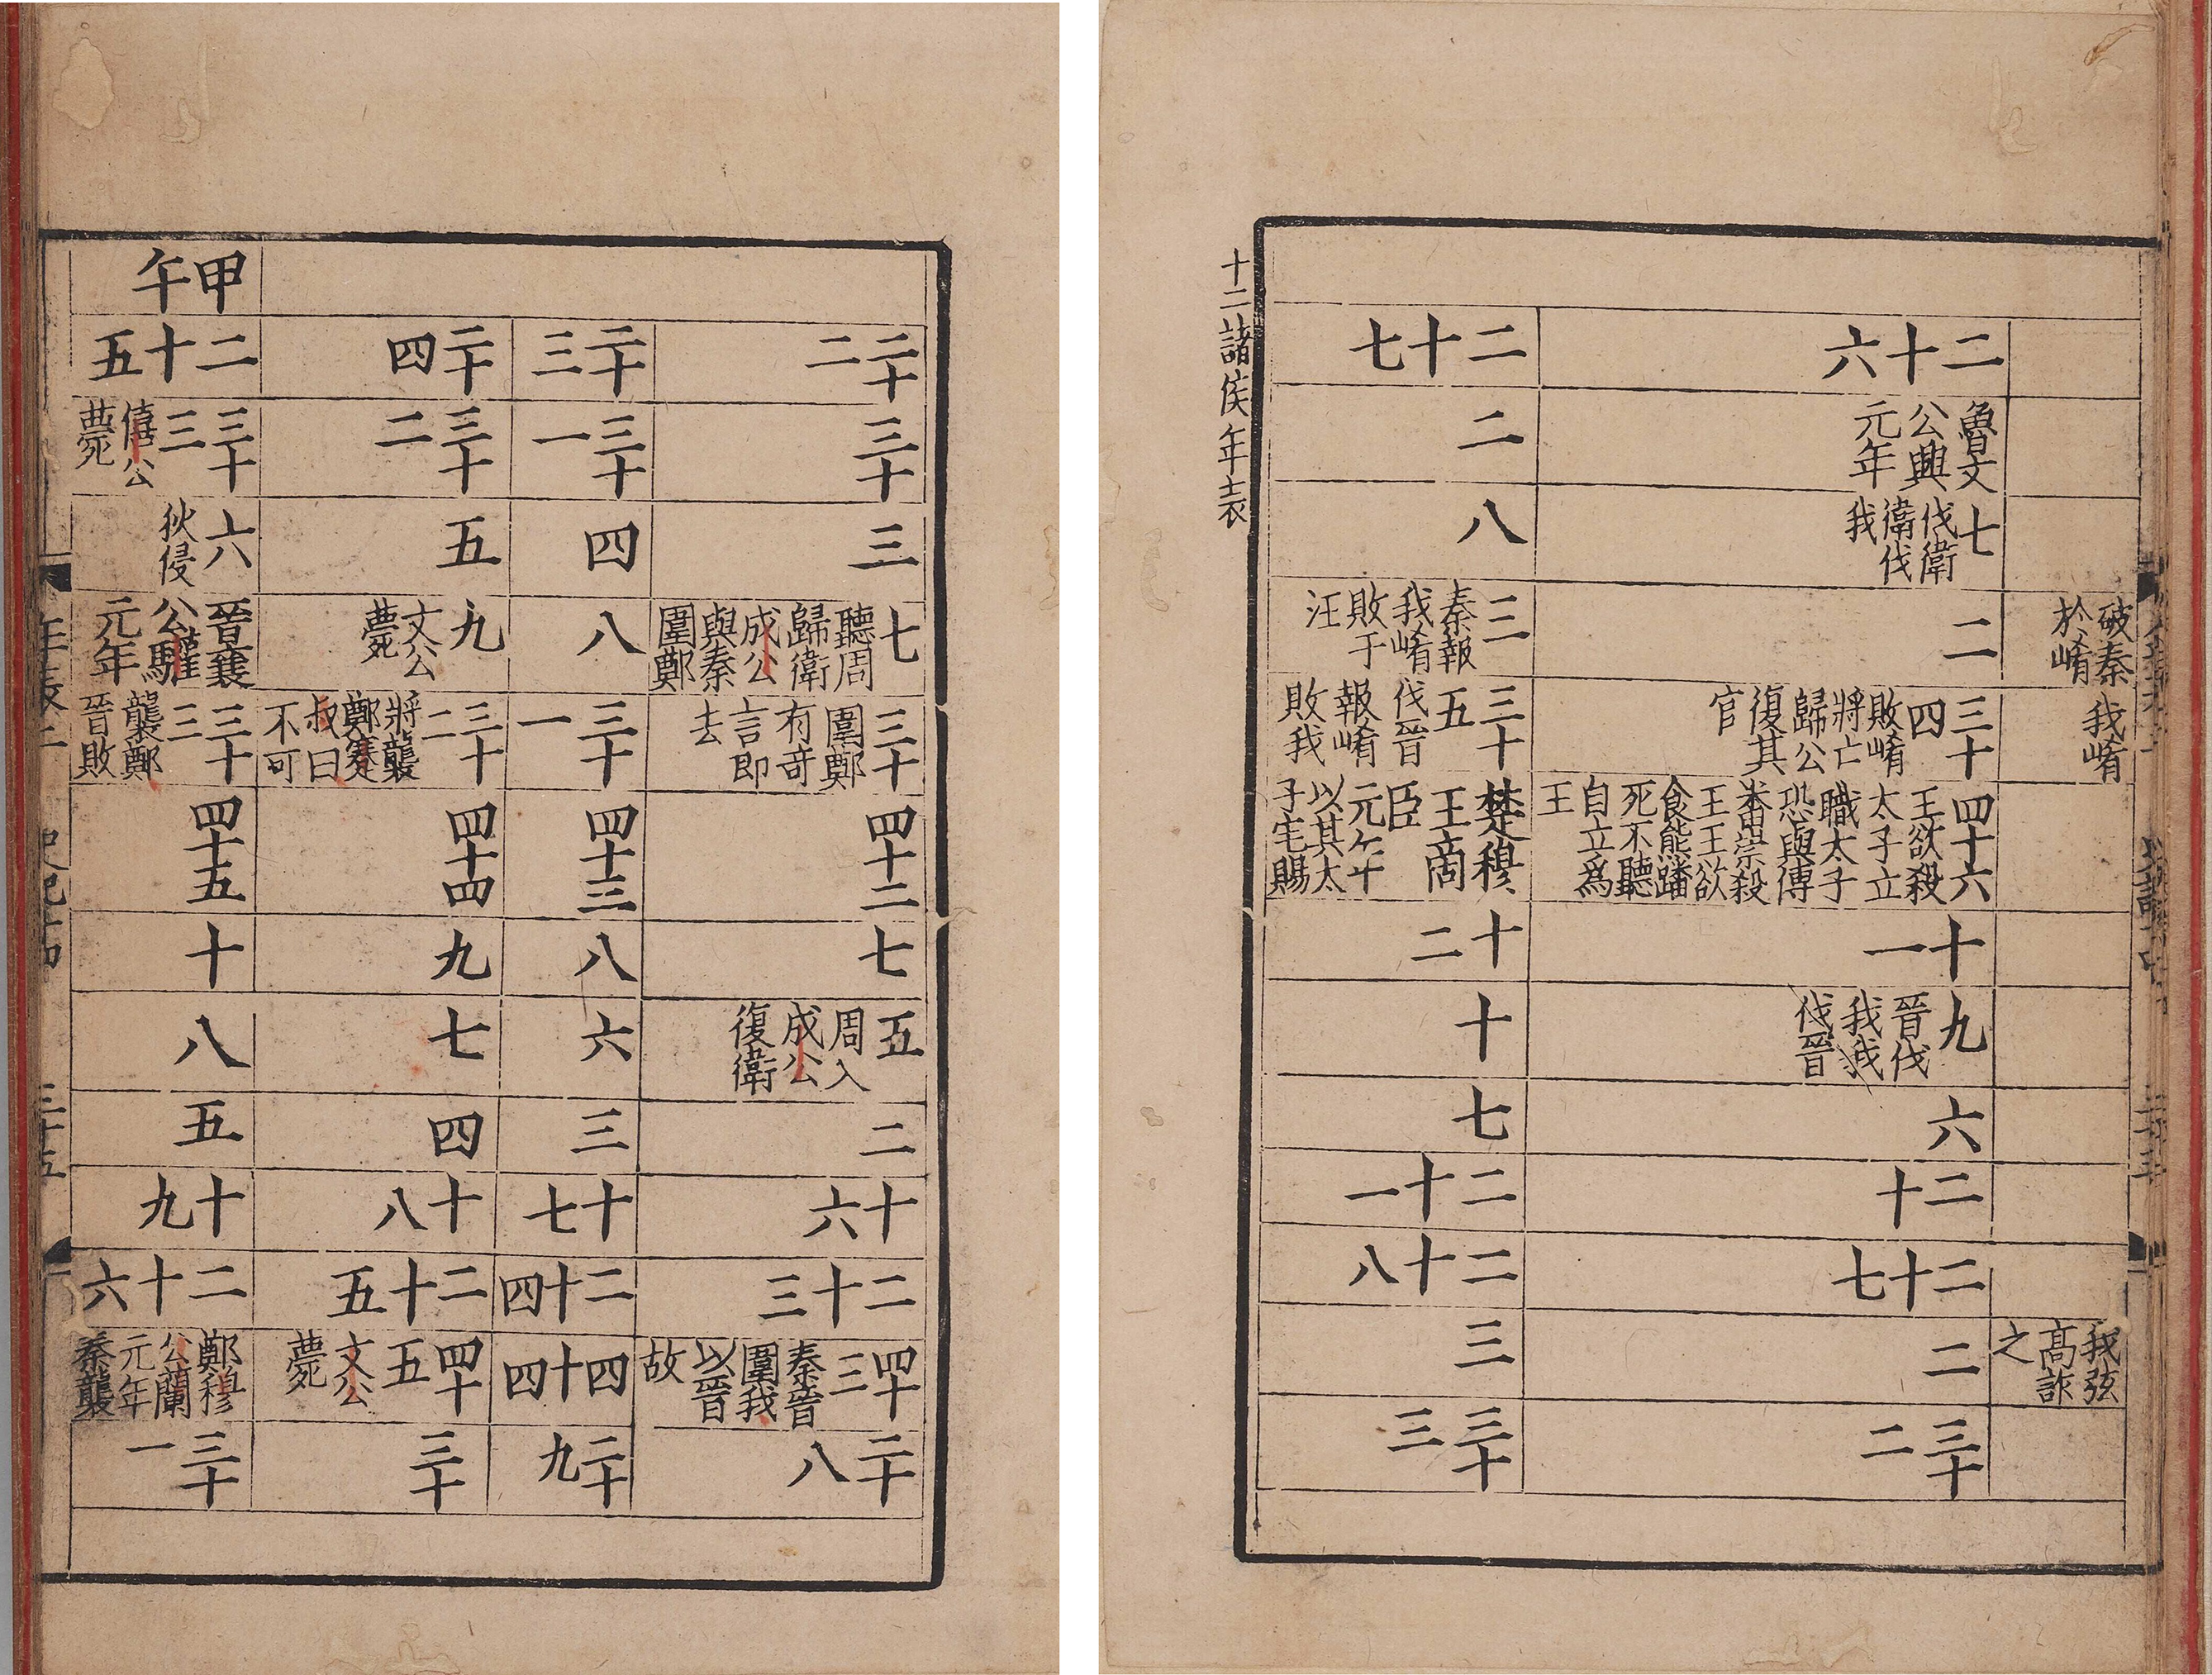 二十二
三十
三
七聽周歸衛成公與秦圍鄭
三十圍鄭有竒言即去
四十二
七
五周入成公復衛
二
十六
二十三
四十三秦晉圍我以晉故
二十八
二十三
三十一
四
八
三十一
四十三
八
六
三
十七
二十四
四十四
二十九
二十四
三十二
五
九文公薨
三十二將襲鄭蹇叔曰不可
四十四
九
七
四
十八
二十五
四十五文公薨
三十
甲午
二十五
三十三僖公薨
六狄侵
晉襄公驩元年
三十三襲鄭晉敗
四十五
十
八
五
十九
二十六
鄭穆公蘭元年秦襲
三十一
破秦於崤
我崤
我弦高詐之
二十六
魯文公興元年
七伐衛衛伐我
二
三十四敗崤將亡歸公復其官
四十六王欲殺太子立職太子恐與傅潘崇殺王王欲食熊蹯死不聽自立爲王
十一
九晉伐我我伐晉
六
二十
二十七
二
三十二
二十七
二
八
三秦報我崤敗于汪
三十五伐晉報崤敗我
楚穆王商臣元年以其太子宅賜
十二
十
七
二十一
二十八
三
三十三
十二諸侯年表